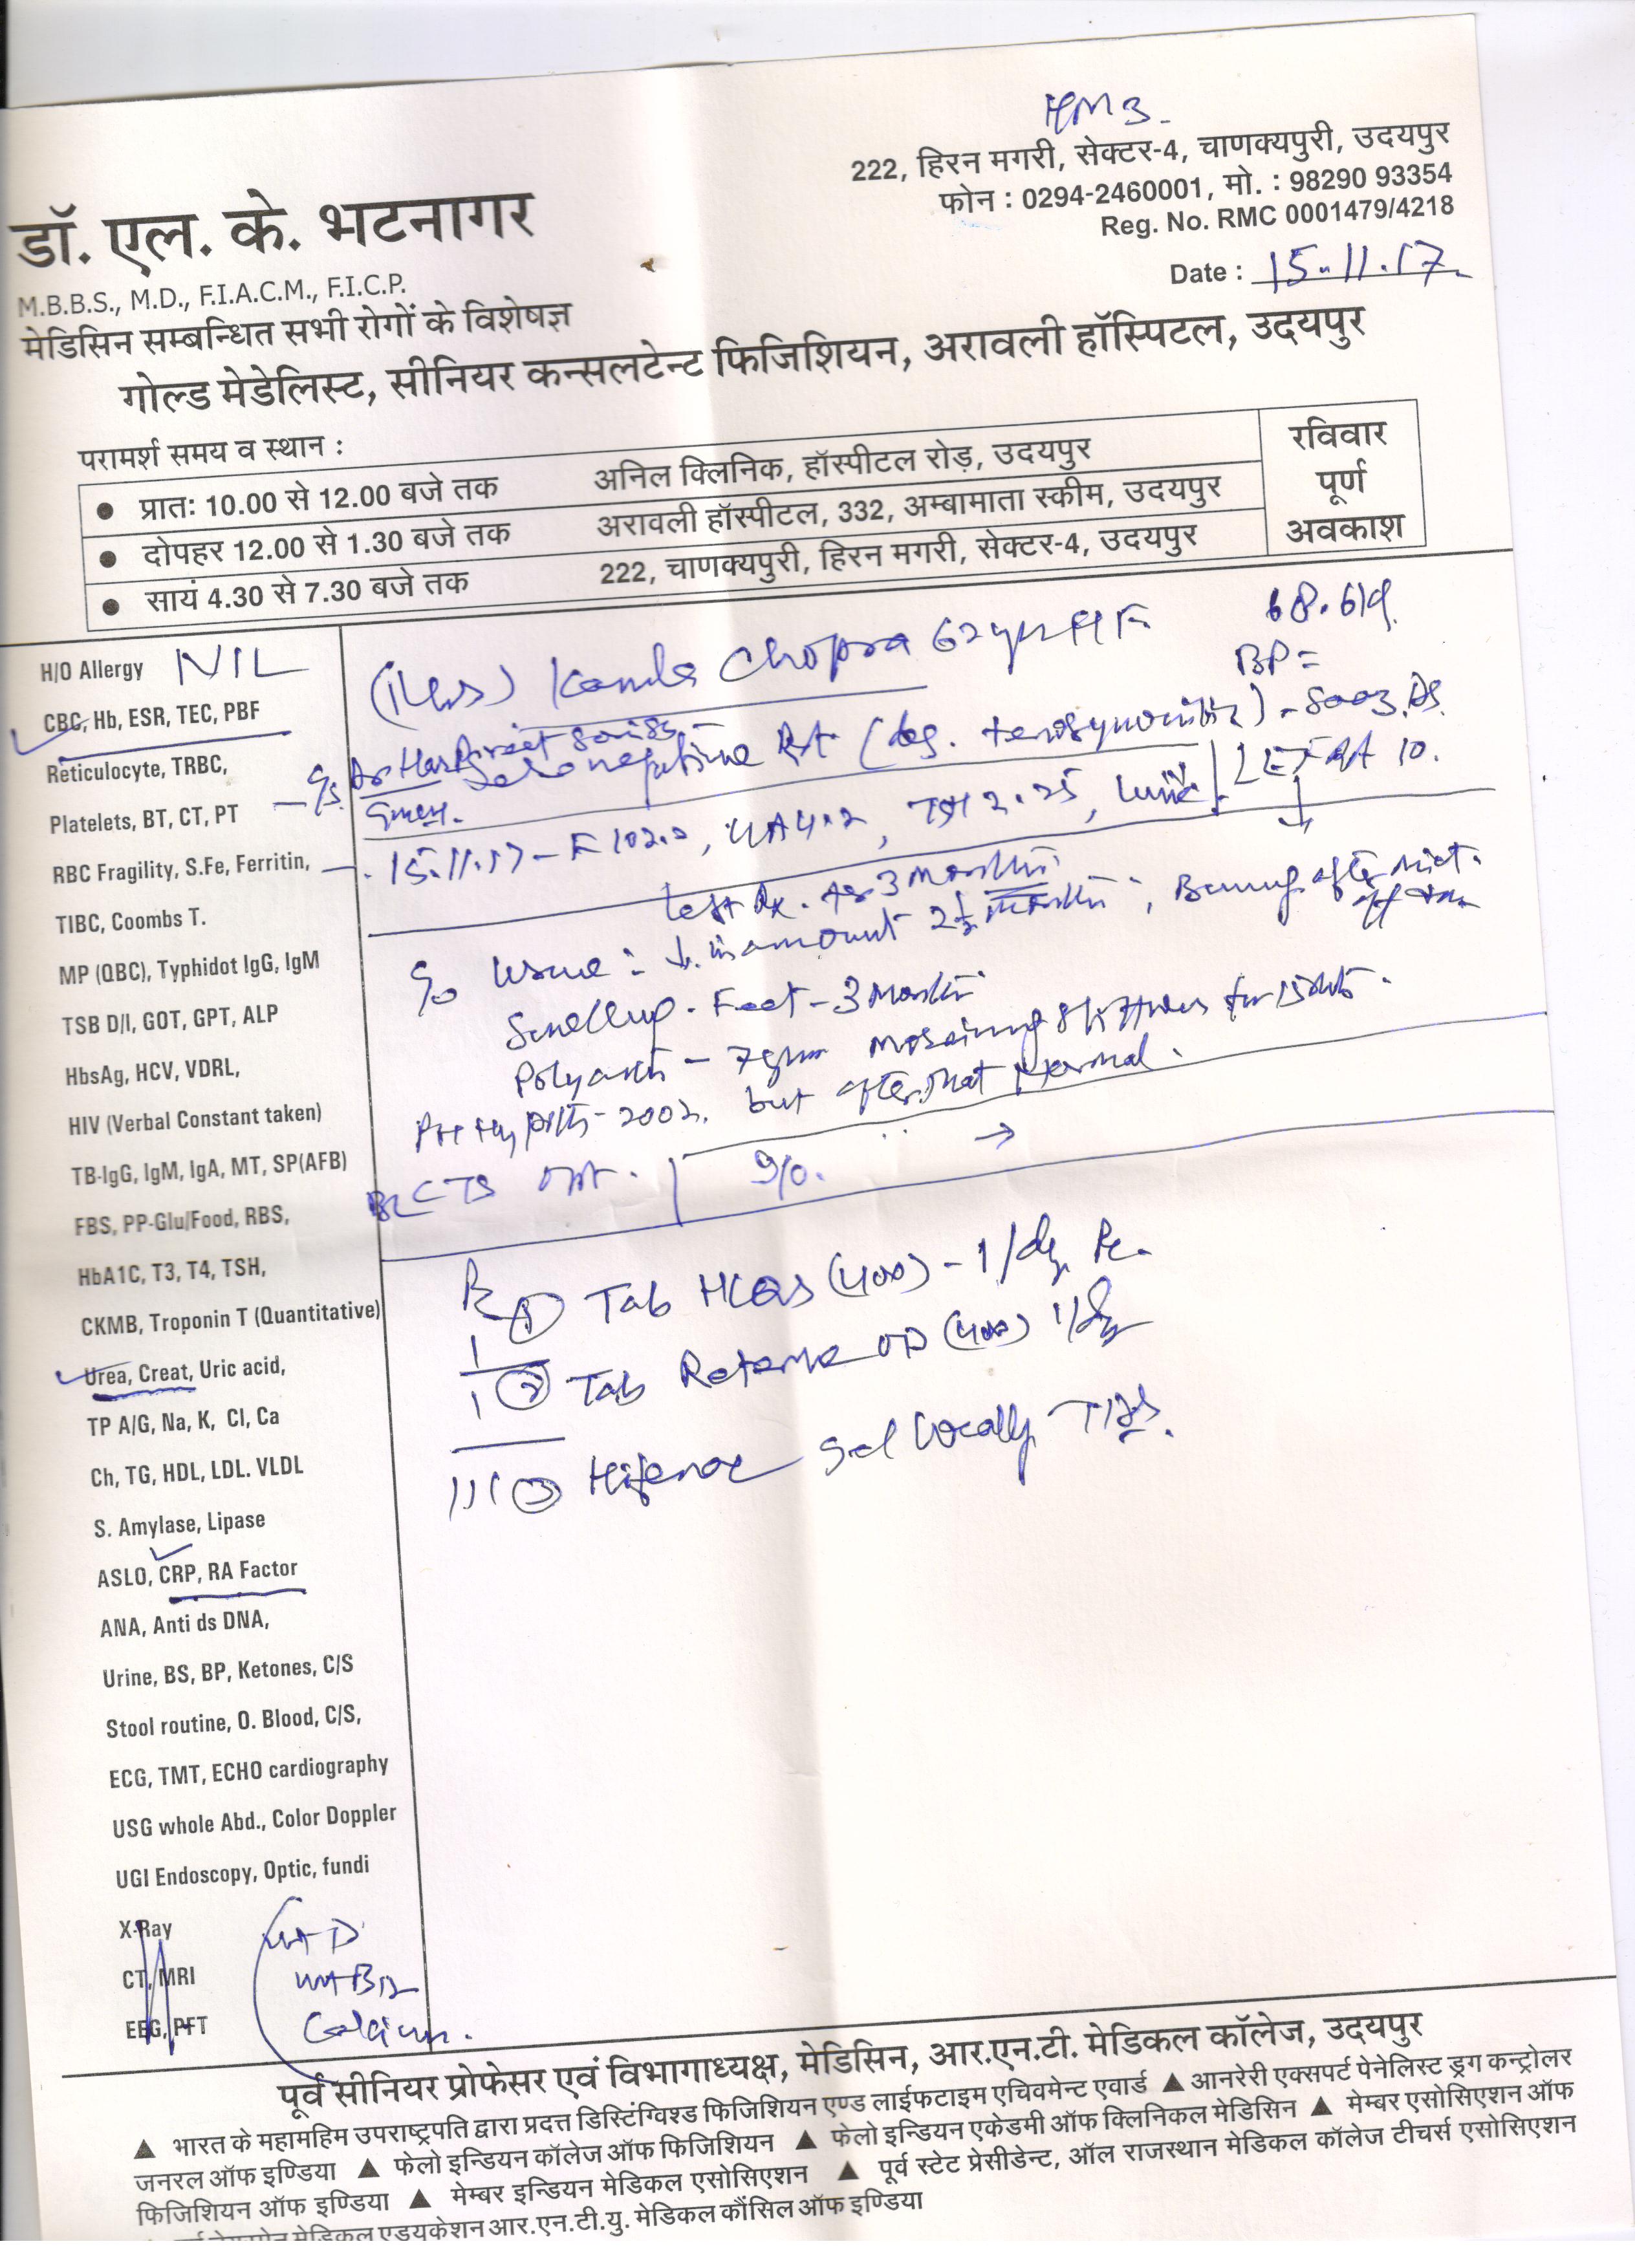 HM3.
222, हिरन मगरी, सेक्टर-4, चाणक्यपुरी, उदयपुर
फोन : 0294-2460001, मो. : 98290 93354
Reg. No. RMC 0001479/4218
Date : 15.11.17
डॉ. एल. के. भटनागर
M.B.B.S., M.D., F.I.A.C.M., F.I.C.P.
मेडिसिन सम्बन्धित सभी रोगों के विशेषज्ञ
गोल्ड मेडेलिस्ट, सीनियर कन्सलटेन्ट फिजिशियन, अरावली हॉस्पिटल, उदयपुर
परामर्श समय व स्थान :
● प्रातः 10.00 से 12.00 बजे तक अनिल क्लिनिक, हॉस्पीटल रोड़, उदयपुर
● दोपहर 12.00 से 1.30 बजे तक अरावली हॉस्पीटल, 332, अम्बामाता स्कीम, उदयपुर
● सायं 4.30 से 7.30 बजे तक 222, चाणक्यपुरी, हिरन मगरी, सेक्टर-4, उदयपुर
रविवार
पूर्ण
अवकाश
H/O Allergy NIL
CBC, Hb, ESR, TEC, PBF
Reticulocyte, TRBC,
Platelets, BT, CT, PT
RBC Fragility, S.Fe, Ferritin,
TIBC, Coombs T.
MP (QBC), Typhidot IgG, IgM
TSB D/I, GOT, GPT, ALP
HbsAg, HCV, VDRL,
HIV (Verbal Constant taken)
TB-IgG, IgM, IgA, MT, SP(AFB)
FBS, PP-Glu/Food, RBS,
HbA1C, T3, T4, TSH,
CKMB, Troponin T (Quantitative)
Urea, Creat, Uric acid,
TP A/G, Na, K, Cl, Ca
Ch, TG, HDL, LDL. VLDL
S. Amylase, Lipase
ASLO, CRP, RA Factor
ANA, Anti ds DNA,
Urine, BS, BP, Ketones, C/S
Stool routine, O. Blood, C/S,
ECG, TMT, ECHO cardiography
USG whole Abd., Color Doppler
UGI Endoscopy, Optic, fundi
X-Ray
CT, MRI
EEG, PFT
Vit D
Vit B12
Calcium.
Kamla Chopra 62
BP =
Seronegative RA tenosynovitis
15.11.17 - F 102.0, UA 4.2, TSH 2.25,
3 Months
Urine : in amount 2½ Months ; Burning after mict.
Swelling . Feet - 3 Months
Morning stiffness for
2002. but after that Normal.
CTS
O/E.
Rx ① Tab HCQS (400) - 1/day
② Tab OD (400) 1/day
③ Hifenac Gel locally TDS.
पूर्व सीनियर प्रोफेसर एवं विभागाध्यक्ष, मेडिसिन, आर.एन.टी. मेडिकल कॉलेज, उदयपुर
▲ भारत के महामहिम उपराष्ट्रपति द्वारा प्रदत्त डिस्टिंग्विश्ड फिजिशियन एण्ड लाईफटाइम एचिवमेन्ट एवार्ड ▲ आनरेरी एक्सपर्ट पेनेलिस्ट ड्रग कन्ट्रोलर
जनरल ऑफ इण्डिया ▲ फेलो इन्डियन कॉलेज ऑफ फिजिशियन ▲ फेलो इन्डियन एकेडमी ऑफ क्लिनिकल मेडिसिन ▲ मेम्बर एसोसिएशन ऑफ
फिजिशियन ऑफ इण्डिया ▲ मेम्बर इन्डियन मेडिकल एसोसिएशन ▲ पूर्व स्टेट प्रेसीडेन्ट, ऑल राजस्थान मेडिकल कॉलेज टीचर्स एसोसिएशन
मेडिकल एडयूकेशन आर.एन.टी.यु. मेडिकल कौंसिल ऑफ इण्डिया